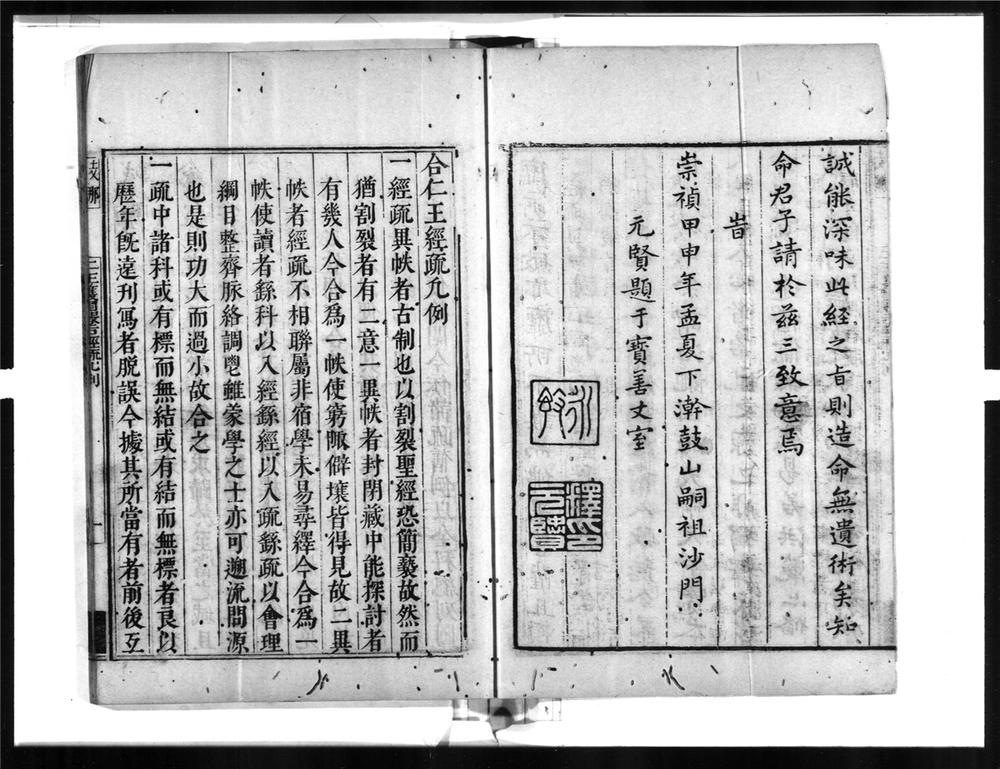 誠能深味此經之旨則造命無遺術矣知
命君子請於茲三致意焉
旹
崇禎甲申年孟夏下澣鼓山嗣祖沙門
元賢題于寶善丈室
釋印元賢
合仁王經疏凡例
一經疏異帙者古制也以割裂聖經恐簡褻故然而
猶割裂者有二意一異帙者封閉藏中能探討者
有幾人今合爲一帙使窮陬僻壤皆得見故二異
帙者經疏不相聯屬非宿學未易尋繹今合爲一
帙使讀者繇科以入經繇經以入疏繇疏以會理
綱目整齊脉絡調鬯雖蒙學之士亦可遡流問源
也是則功大而過小故合之
一疏中諸科或有標而無結或有結而無標者良以
歷年旣遠刊寫者脫誤今據其所當有者前後互